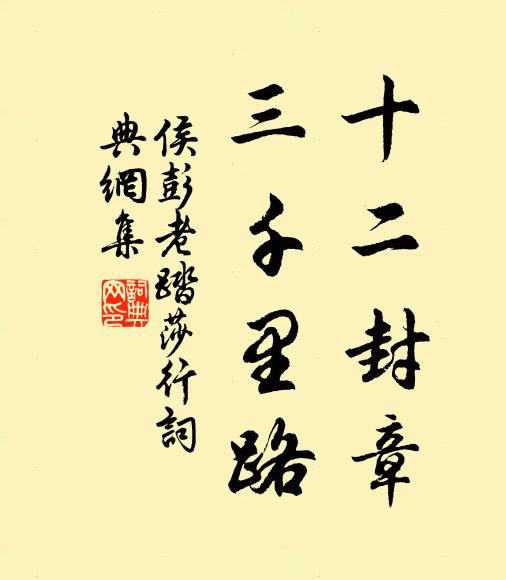 十二封章
三千里路
侯彭老踏莎行詞
典網集
詞典網印